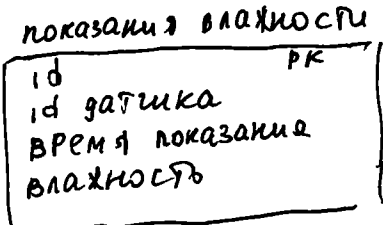 показания влажности
id PK
id датчика
время показания
влажность